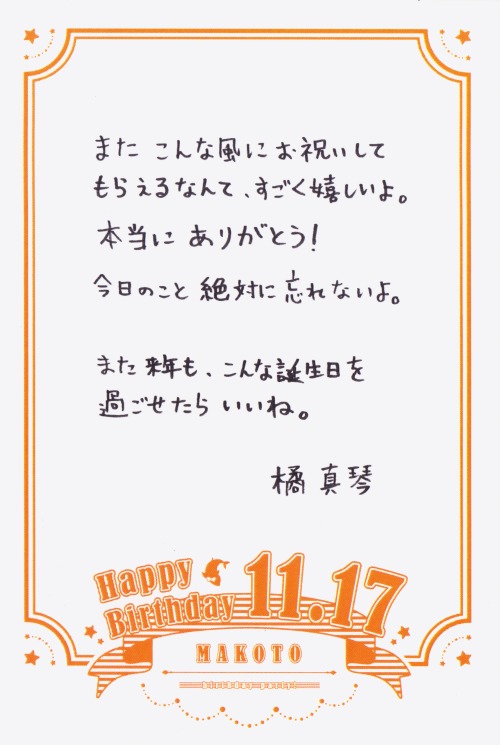 また こんな風にお祝いして
もらえるなんて、すごく嬉しいよ。
本当に ありがとう!
今日のこと 絶対に 忘れないよ。
また 来年も、こんな誕生日を
過ごせたら いいね。
橘 真琴
Happy
Birthday 11.17
MAKOTO
birthday party!